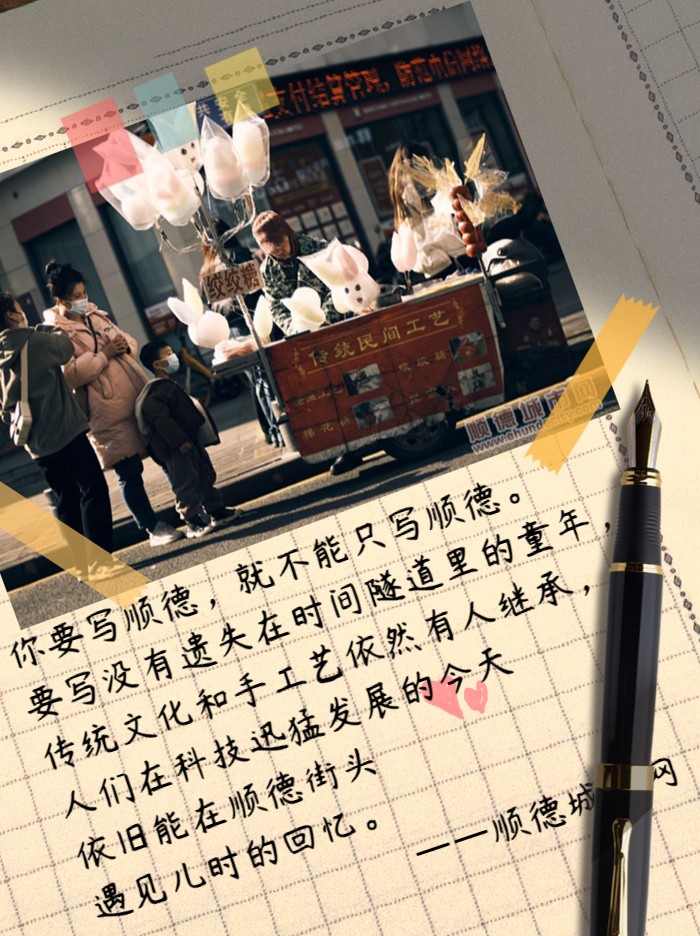 支付结算管理，防范电信网络
绞绞糖
传统民间工艺
棉花糖
顺德城市网
www.shundecity.com
你要写顺德，就不能只写顺德。
要写没有遗失在时间隧道里的童年，
传统文化和手工艺依然有人继承，
人们在科技迅猛发展的今天
依旧能在顺德街头
遇见儿时的回忆。
——顺德城 网